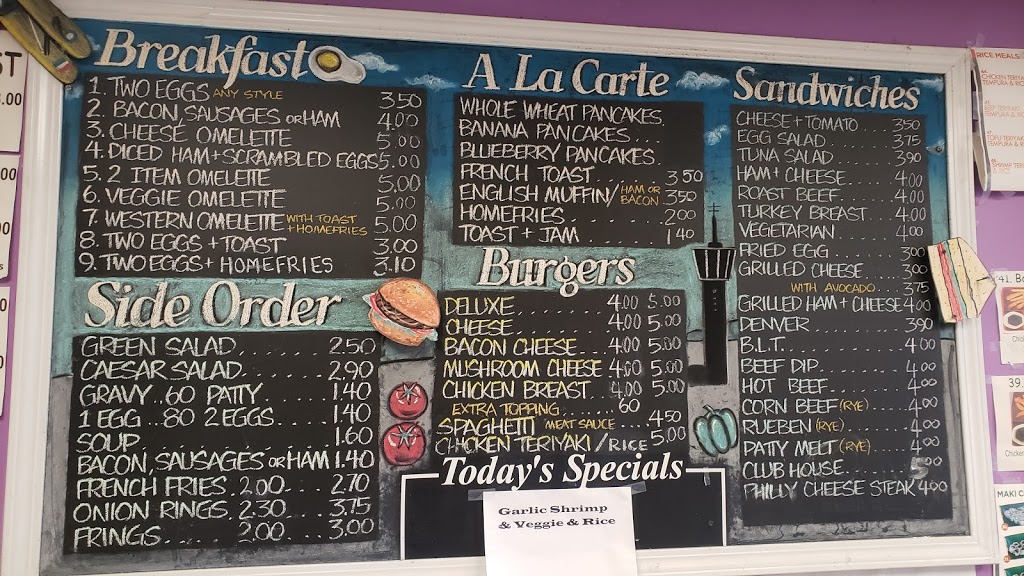 Breakfast
1. TWO EGGS ANY STYLE 3.50
2. BACON, SAUSAGES OR HAM 4.00
3. CHEESE OMELETTE 5.00
4. DICED HAM + SCRAMBLED EGGS 5.00
5. 2 ITEM OMELETTE 5.00
6. VEGGIE OMELETTE 5.00
7. WESTERN OMELETTE WITH TOAST + HOMEFRIES 5.00
8. TWO EGGS + TOAST 3.00
9. TWO EGGS + HOMEFRIES 3.10
Side Order
GREEN SALAD...... 2.50
CAESAR SALAD..... 2.90
GRAVY..60 PATTY 1.40
1 EGG ..80 2 EGGS.... 1.40
SOUP........ 1.60
BACON, SAUSAGES OR HAM 1.40
FRENCH FRIES.2.00... 2.70
ONION RINGS.2.30... 3.75
FRINGS....2.00... 3.00
A La Carte
WHOLE WHEAT PANCAKES
BANANA PANCAKES...
BLUEBERRY PANCAKES..
FRENCH TOAST...... 3.50
ENGLISH MUFFIN/ HAM OR BACON 3.50
HOMEFRIES....... 2.00
TOAST + JAM...... 1.40
Burgers
DELUXE..... 4.00 5.00
CHEESE..... 4.00 5.00
BACON CHEESE 4.00 5.00
MUSHROOM CHEESE 4.00 5.00
CHICKEN BREAST 4.00 5.00
EXTRA TOPPING...... 60
SPAGHETTI (MEAT SAUCE) 4.50
CHICKEN TERIYAKI / RICE 5.00
Today's Specials
Garlic Shrimp
& Veggie & Rice
Sandwiches
CHEESE + TOMATO.... 3.50
EGG SALAD...... 3.75
TUNA SALAD..... 3.90
HAM + CHEESE.... 4.00
ROAST BEEF..... 4.00
TURKEY BREAST... 4.00
VEGETARIAN..... 4.00
FRIED EGG...... 3.00
GRILLED CHEESE... 3.00
WITH AVOCADO.. 3.75
GRILLED HAM + CHEESE 4.00
DENVER....... 3.90
B.L.T........ 4.00
BEEF DIP...... 4.00
HOT BEEF...... 4.00
CORN BEEF (RYE)... 4.00
RUEBEN (RYE).... 4.00
PATTY MELT (RYE)... 4.00
CLUB HOUSE..... 5.00
PHILLY CHEESE STEAK 4.00
RICE MEALS
MAKI C